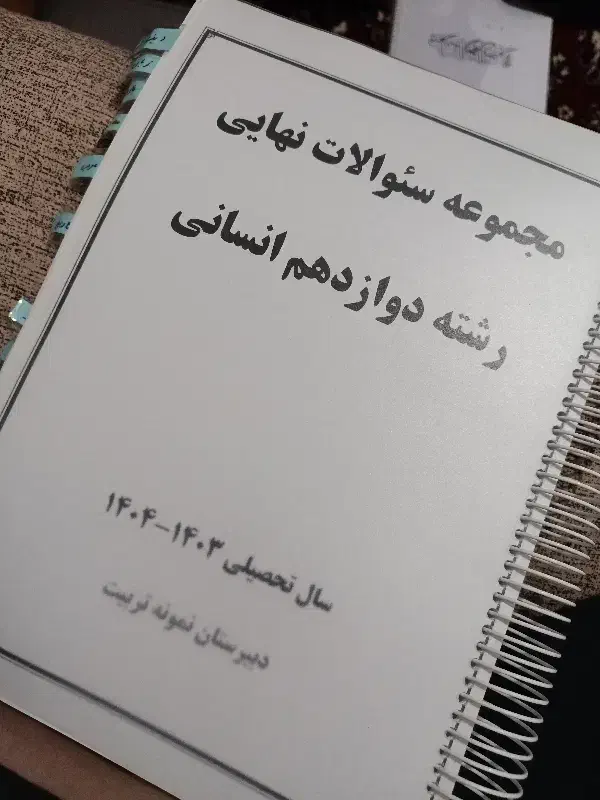 مجموعه سئوالات نهایی
رشته دوازدهم انسانی
سال تحصیلی ۱۴۰۳-۱۴۰۴
دبیرستان نمونه تربیت